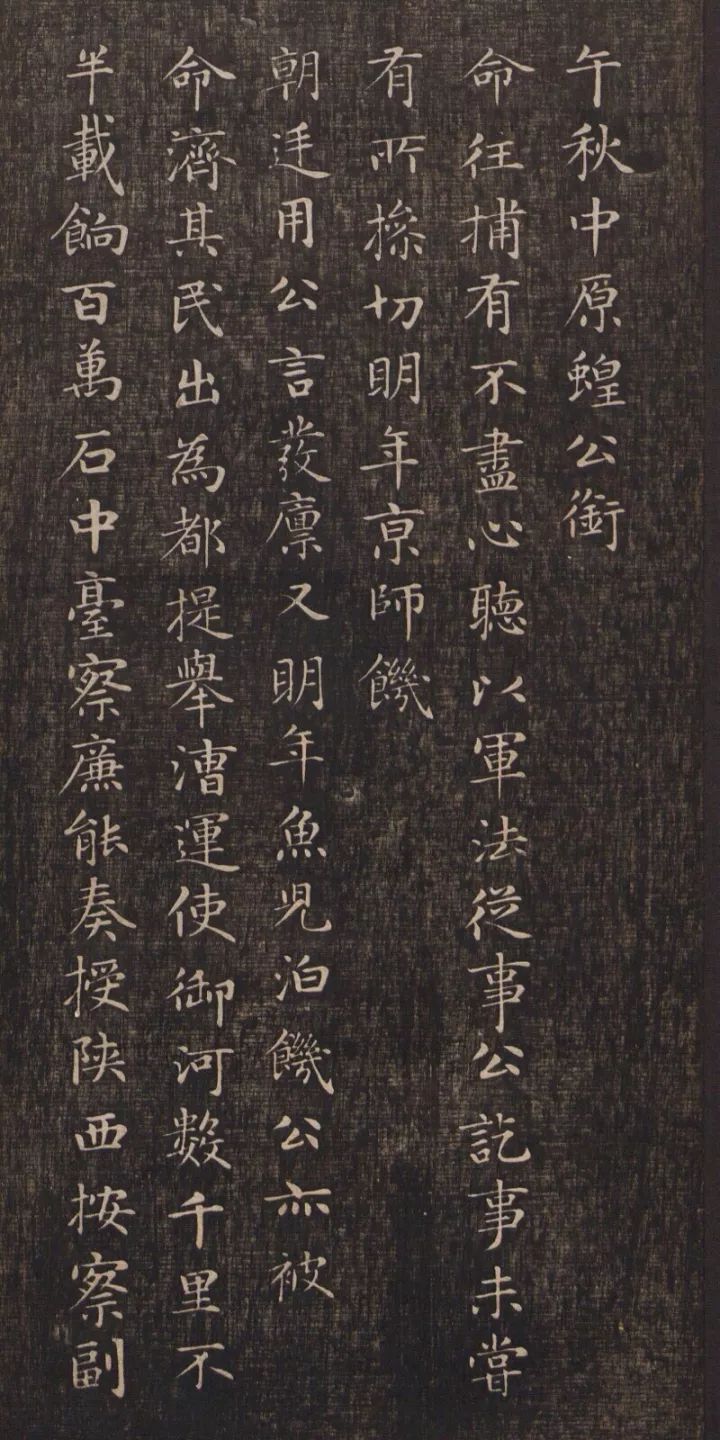 午秋中原蝗公銜
命往捕有不盡心聽以軍法從事公訖事未嘗
有所㩲切明年京師饑
朝廷用公言發廩又明年魚児泊饑公亦被
命濟其民出為都提舉漕運使御河數千里不
半載餉百萬石中臺察廉能奏授陝西按察副